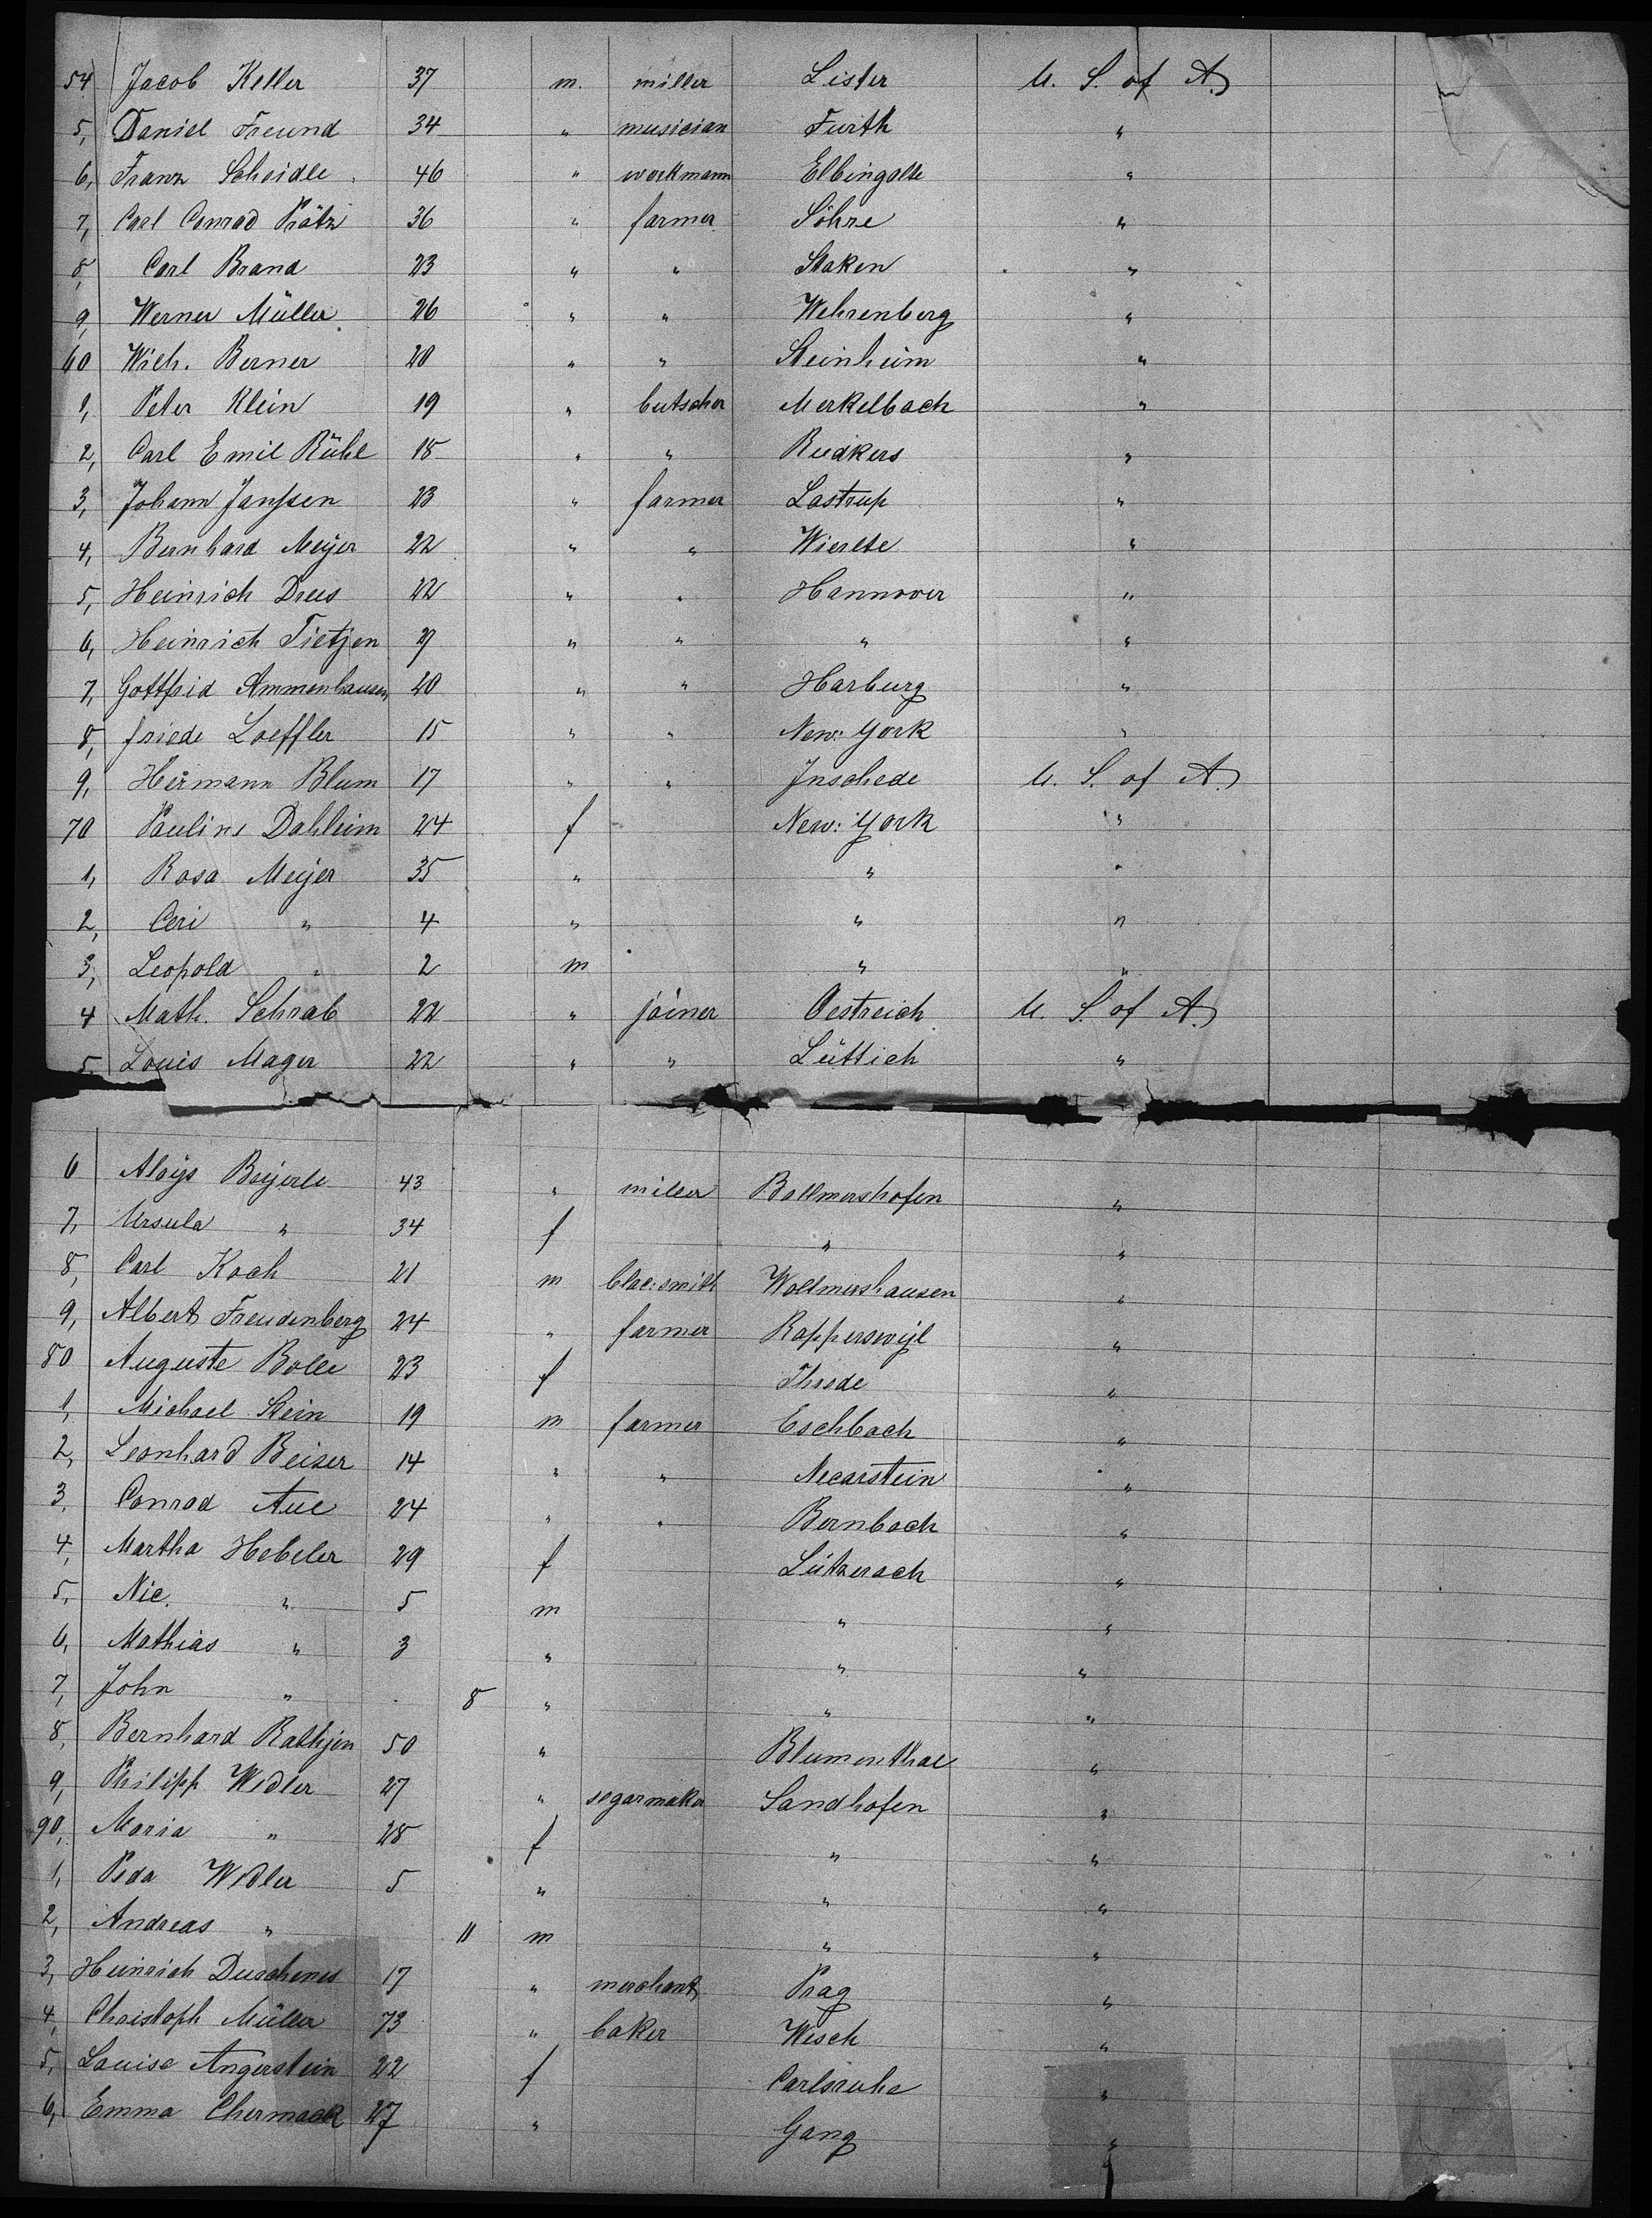 54 Jacob Keller 37 m. miller Lister U. S. of A.
5, Daniel Freund 34 " musician Furth "
6, Franz Scheidle 46 " workmann Elbingolte "
7, Carl Conrad Prötz 36 " farmer Söhre "
8, Carl Brand 23 " " Staken "
9, Werner Müller 26 " " Wehrenberg "
60 Wilh. Berner 20 " " Steinheim "
1, Peter Klein 19 " butscher Merkelbach "
2, Carl Emil Rühl 18 " " Rudkers "
3, Johann Janssen 23 " farmer Lastrup "
4, Bernhard Meyer 22 " " Wierlte "
5, Heinrich Drees 22 " " Hannover "
6, Heinrich Tietjen 29 " " " "
7, Gottfrid Ammenhausen 20 " " Harburg "
8, friede Loeffler 15 " " New: York "
9, Hermann Blum 17 " " Inschede U. S. of A.
70 Pauline Dahleim 24 f New: York "
1, Rosa Meyer 35 " " "
2, Ceri " 4 " " "
3, Leopold " 2 m " "
4 Math. Schrab 22 " joiner Oestreich U. S. of A.
5, Louis Mager 22 " " Lüttich "
6 Aloys Beyerle 43 " miller Ballmershofen "
7, Ursula " 34 f " "
8, Carl Koch 21 m blac:smith Wollmershausen "
9, Albert Freudenberg 24 " farmer Rapperswyl "
80 Auguste Bolle 23 f Threde "
1, Michael Stein 19 m farmer Eschbach "
2, Leonhard Beiser 14 " " Necarstein "
3, Conrad Aue 24 " " Bernbach "
4, Martha Hebeler 29 f Lützerach "
5, Nic. " 5 m " "
6, Mathias " 3 " " "
7, John " 8 " " "
8, Bernhard Rathjen 50 " Blumenthal "
9, Philipp Widler 27 " segarmaker Sandhofen "
90, Maria " 28 f " "
1, Peda Widler 5 " " "
2, Andreas " 11 m " "
3, Heinrich Duschenes 17 " merchant Prag "
4, Christoph Müller 73 " baker Wesch "
5, Louise Angerstein 22 f Carlsruhe "
6, Emma Chermack 27 " Gang "